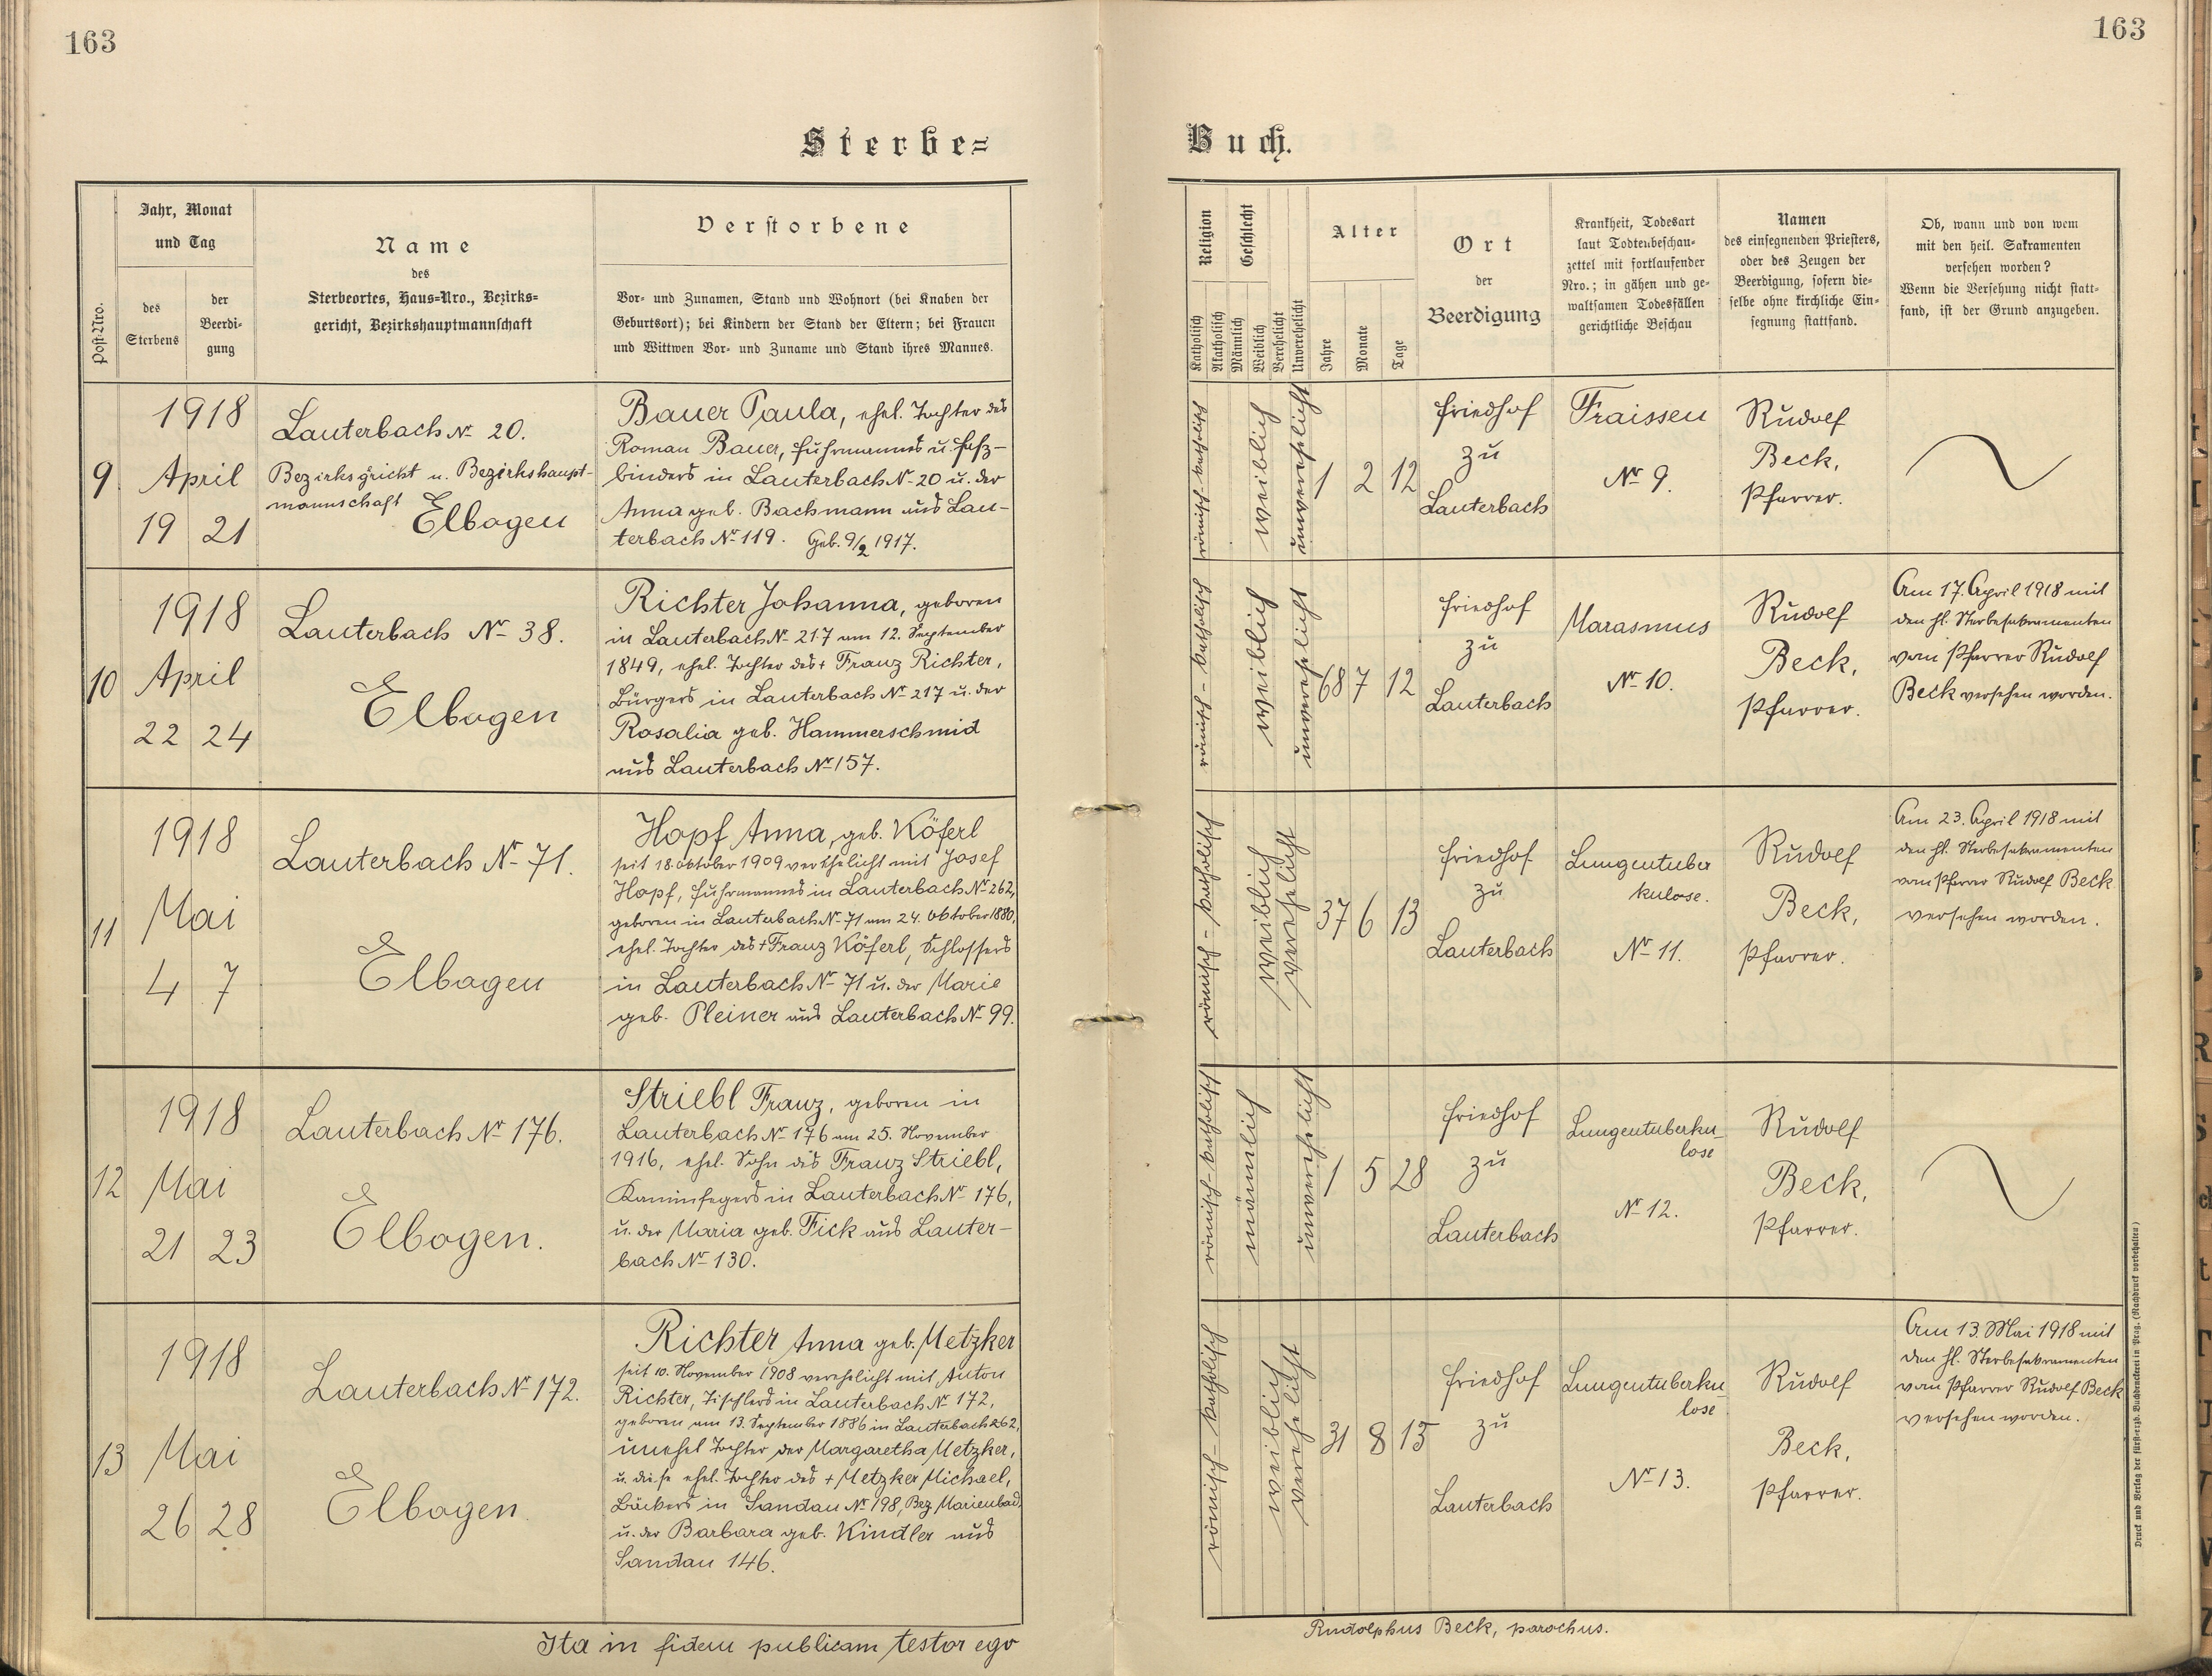 163
163
Sterbe=
Buch.
Post-Nro.
Jahr, Monat
und Tag
des
Sterbens
der
Beerdi-
gung
Name
des
Sterbeortes, Haus=Nro., Bezirks=
gericht, Bezirkshauptmannschaft
Verstorbene
Vor- und Zunamen, Stand und Wohnort (bei Knaben der
Geburtsort); bei Kindern der Stand der Eltern; bei Frauen
und Wittwen Vor- und Zuname und Stand ihres Mannes.
Religion
Katholisch
Akatholisch
Geschlecht
Männlich
Weiblich
Verehelicht
Unverehelicht
Alter
Jahre
Monate
Tage
Ort
der
Beerdigung
Krankheit, Todesart
laut Todtenbeschau-
zettel mit fortlaufender
Nro.; in gähen und ge-
waltsamen Todesfällen
gerichtliche Beschau
Namen
des einsegnenden Priesters,
oder des Zeugen der
Beerdigung, sofern die-
selbe ohne kirchliche Ein-
segnung stattfand.
Ob, wann und von wem
mit den heil. Sakramenten
versehen worden?
Wenn die Versehung nicht statt-
fand, ist der Grund anzugeben.
9.
1918
April
19 21
Lauterbach Nr 20.
Bezirksgricht u. Bezirkshaupt-
mannschaft
Elbogen
Bauer Paula, ehel. Tochter des
Roman Bauer, Fuhrmannes u. Faß-
binders in Lauterbach Nr 20 u. der
Anna geb. Bachmann aus Lau-
terbach Nr 119. Geb. 9/2 1917.
römisch-katholisch
weiblich
unverehelicht
1 2 12
Friedhof
zu
Lauterbach
Fraissen
Nr 9.
Rudolf
Beck,
Pfarrer.
10
1918
April
22 24
Lauterbach Nr 38.
Elbogen
Richter Johanna, geboren
in Lauterbach Nr 217 am 12. September
1849, ehel. Tochter des + Franz Richter,
Bürgers in Lauterbach Nr 217 u. der
Rosalia geb. Hammerschmid
aus Lauterbach Nr 157.
römisch-katholisch
weiblich
unverehelicht
68 7 12
Friedhof
zu
Lauterbach
Marasmus
Nr 10.
Rudolf
Beck,
Pfarrer.
Am 17. April 1918 mit
den hl. Sterbesakramenten
vom Pfarrer Rudolf
Beck versehen worden.
11
1918
Mai
4 7
Lauterbach Nr 71.
Elbogen
Hopf Anna, geb. Köferl
seit 18 oktober 1909 verehelicht mit Josef
Hopf, Fuhrmannes in Lauterbach Nr 262,
geboren in Lauterbach Nr 71 am 24. Oktober 1880,
ehel. Tochter des + Franz Köferl, Schlossers
in Lauterbach Nr 71 u. der Marie
geb. Pleiner aus Lauterbach Nr 99.
römisch-katholisch
weiblich
verehelicht
37 6 13
Friedhof
zu
Lauterbach
Lungentuber
kulose.
Nr 11.
Rudolf
Beck,
Pfarrer.
Am 23. April 1918 mit
den hl. Sterbesakramenten
vom Pfarrer Rudolf Beck
versehen worden.
12
1918
Mai
21 23
Lauterbach Nr 176.
Elbogen.
Striebl Franz, geboren in
Lauterbach Nr 176 am 25. November
1916, ehel. Sohn des Franz Striebl,
Kaminfegers in Lauterbach Nr 176,
u. der Maria geb. Fick aus Lauter-
bach Nr 130.
römisch-katholisch
mänlich
unverehelicht
1 5 28
Friedhof
zu
Lauterbach
Lungentuberku-
lose
Nr 12.
Rudolf
Beck,
Pfarrer.
13
1918
Mai
26 28
Lauterbach Nr 172.
Elbogen.
Richter Anna geb. Metzker
seit 10. November 1908 verehelicht mit Anton
Richter, Tischlers in Lauterbach Nr 172,
geboren am 13. September 1886 in Lauterbach 262,
unehel Tochter der Margaretha Metzker,
u. diese ehel. Tochter des + Metzker Michael,
Bäckers in Sandau Nr 198, Bez Marienbad.
u. der Barbara geb. Kindler aus
Sandau 146.
römisch-katholisch
weiblich
verehelicht
31 8 13
Friedhof
zu
Lauterbach
Lungentuberku-
lose
Nr 13.
Rudolf
Beck,
Pfarrer.
Am 13. Mai 1918 mit
den hl. Sterbesakramenten
vom Pfarrer Rudolf Beck
versehen worden.
Ita in fidem publicam testor ego
Rudolphus Beck, parochus.
Druck und Verlag der fürst-erzb. Buchdruckerei in Prag. (Nachdruck vorbehalten)